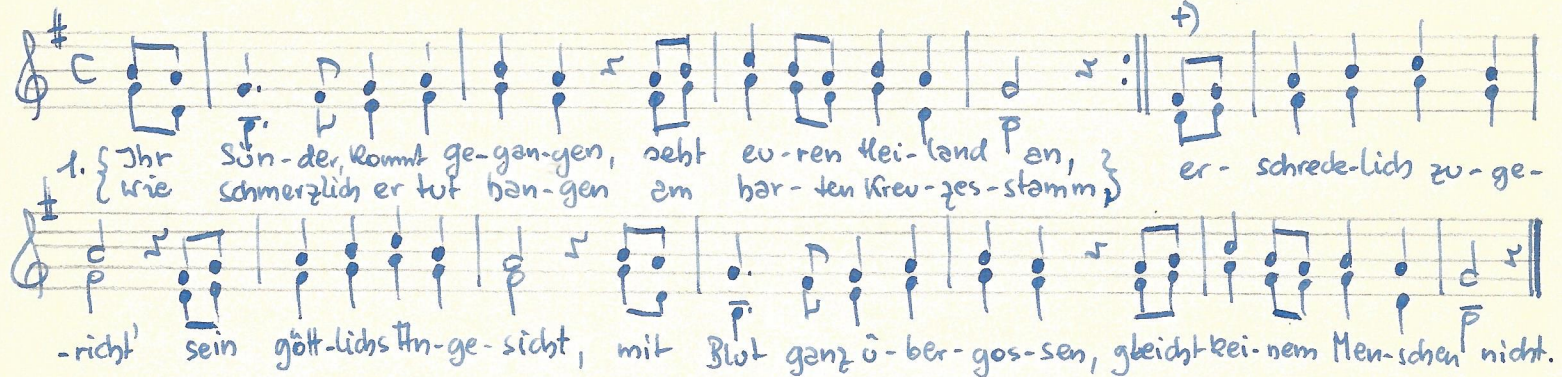 +)
1. { Ihr Sün-der, kommt ge-gan-gen, seht eu-ren Hei-land an, }
{ wie schmerzlich er tut han-gen am har-ten Kreu-zes-stamm, } er- schreck-lich zu-ge-
-richt' sein gött-lichs An-ge-sicht, mit Blut ganz ü-ber-gos-sen, gleicht kei-nem Men-schen nicht.